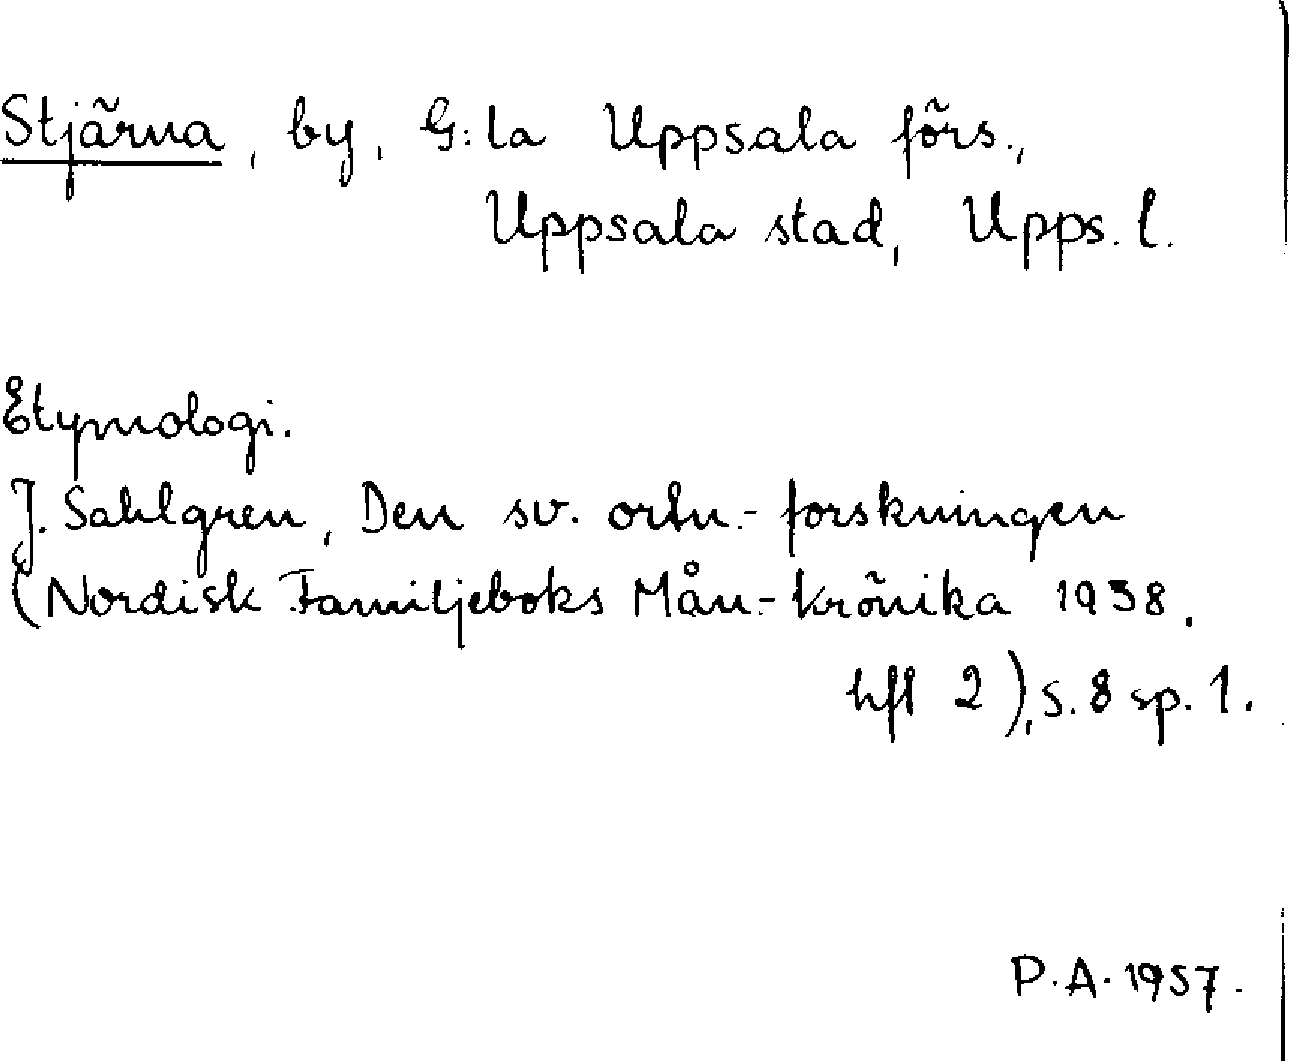 Stjärna, by, G:la Uppsala förs.,
Uppsala stad, Upps. l.
Etymologi.
J. Sahlgren, Den sv. ortn.-forskningen
(Nordisk Familjeboks Mån.-krönika 1938.
hft 2), s. 8 sp. 1.
P.A. 1957.